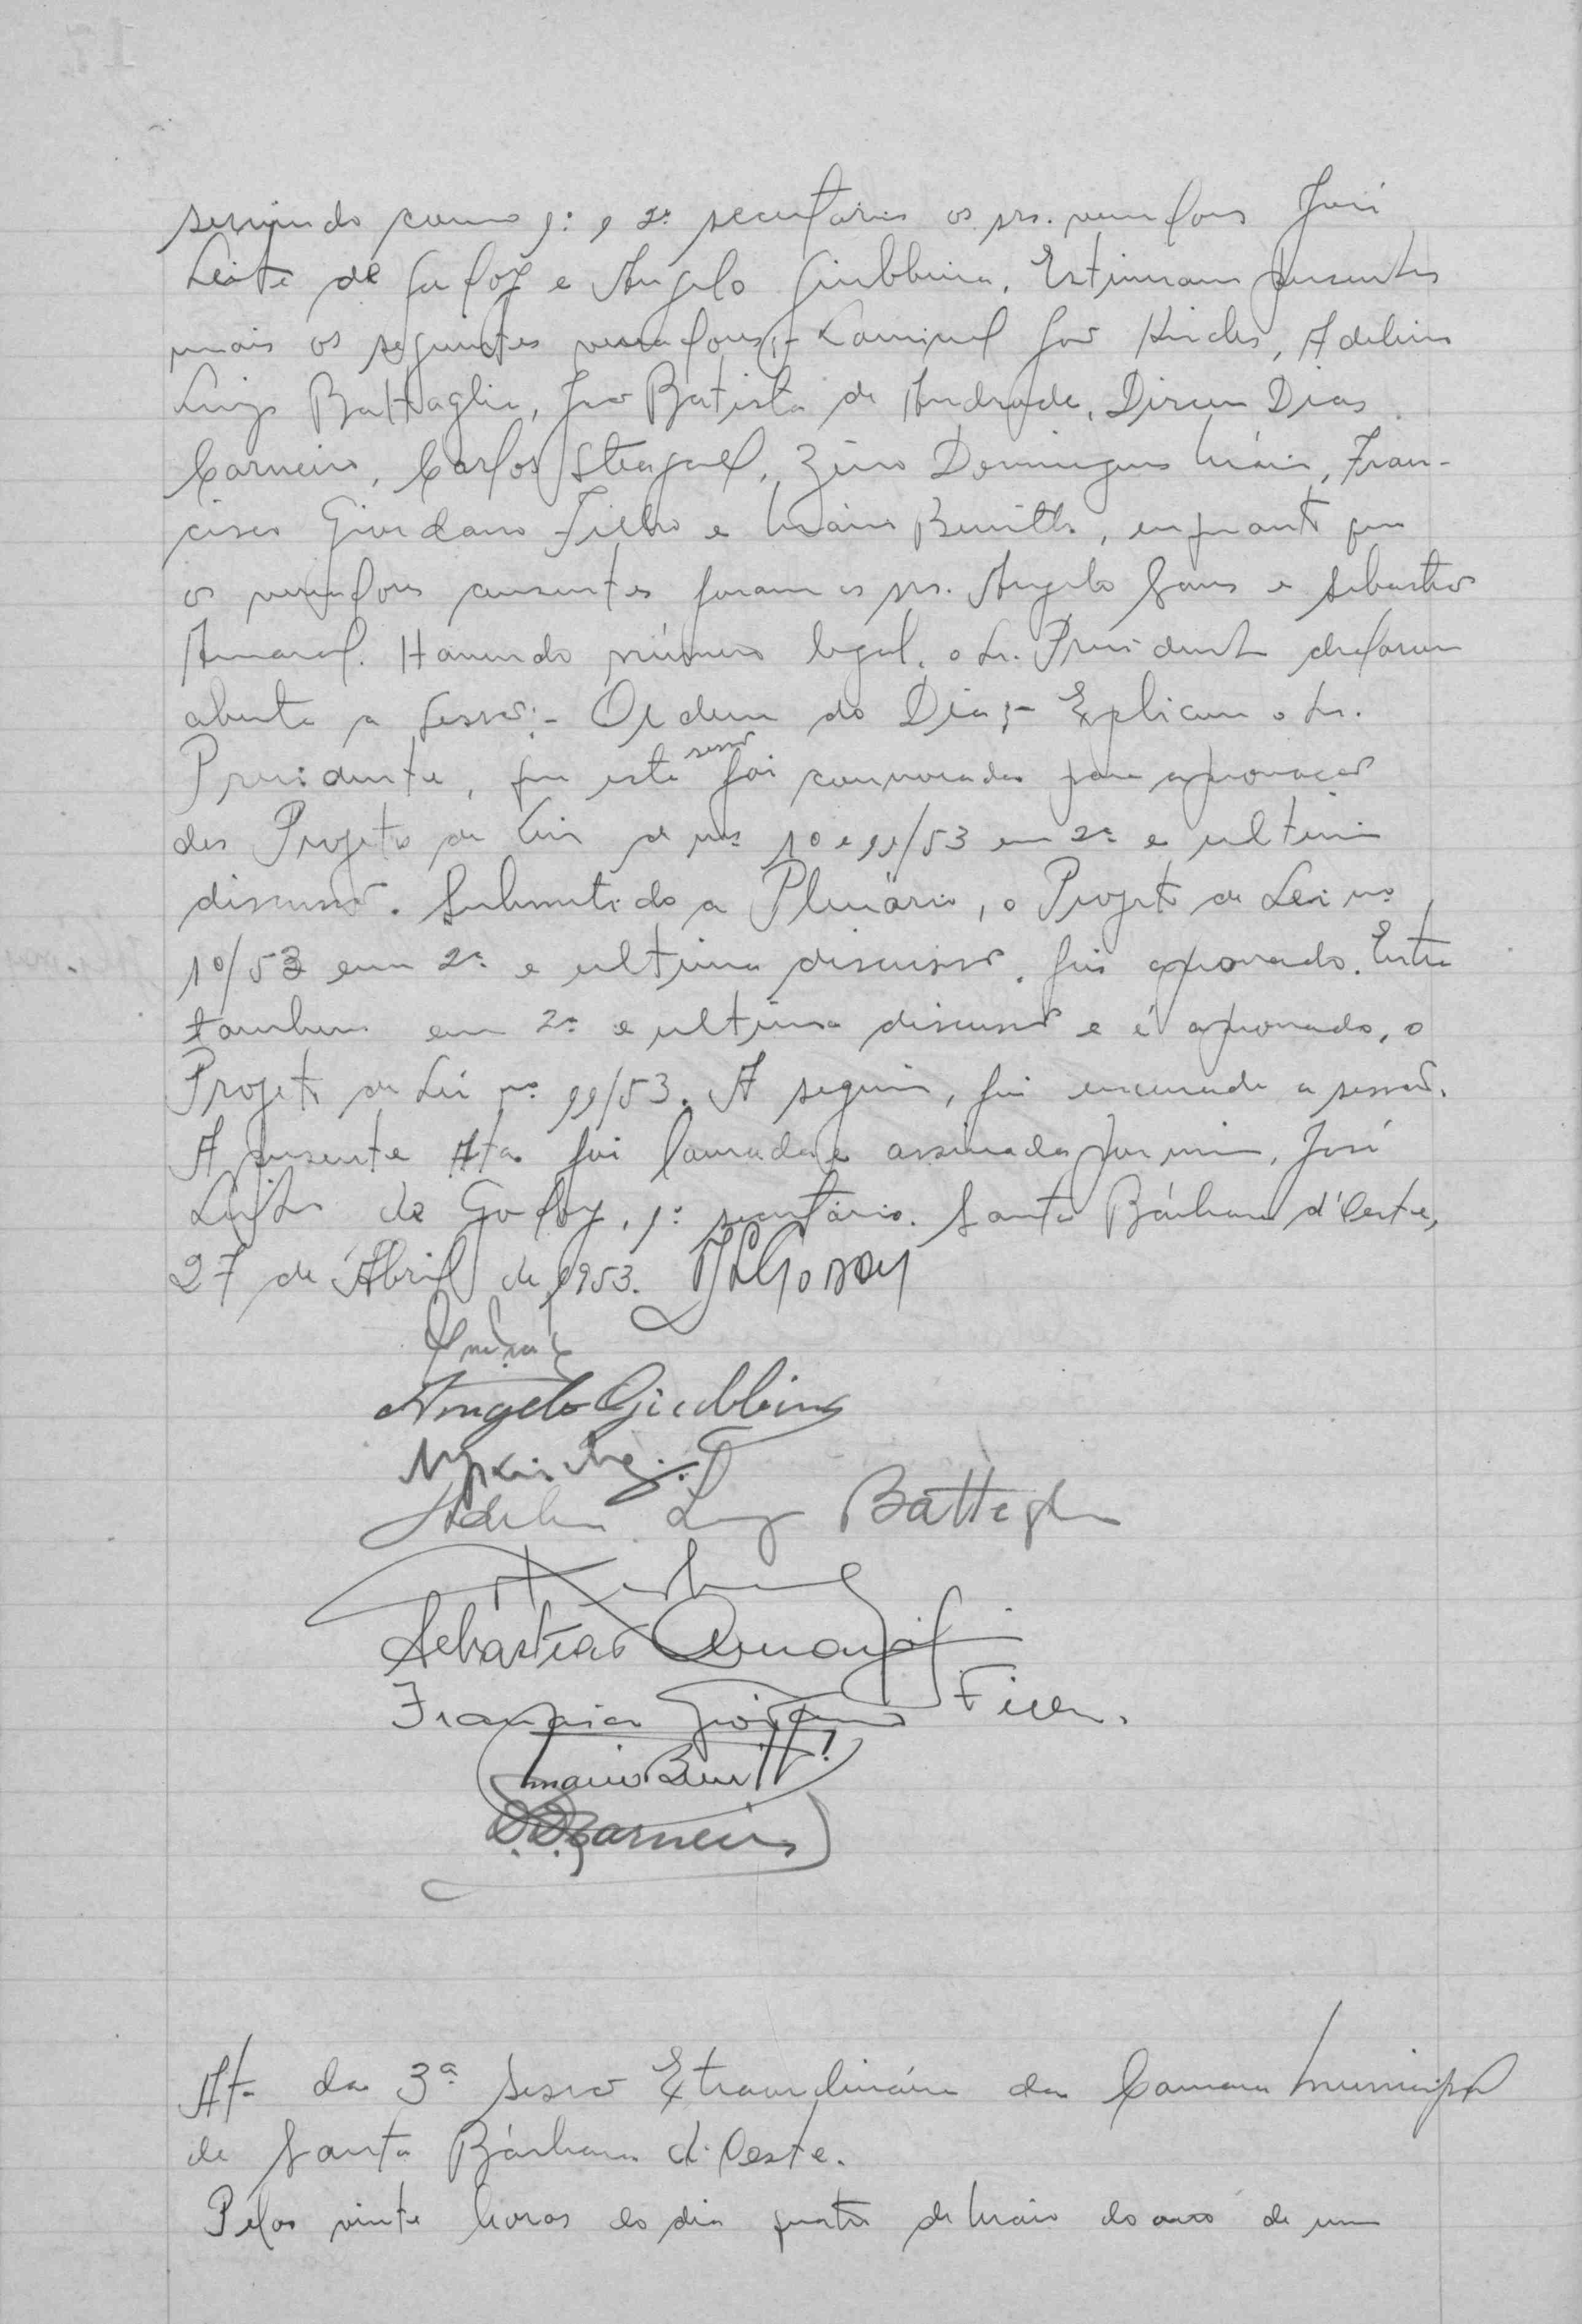 servindo como 1º e 2º secretários os srs. vereadores José
Leite de Godoy e Angelo Giubbina. Estiveram presentes
mais os seguintes vereadores;-
Luiz Battaglia, João Batista de Andrade, Dirceu Dias
Carneiro, Carlos Steagall, Zino Domingues Maia, Fran-
cisco Giordano Filho e Mário Buratto, enquanto que
os vereadores ausentes foram os srs. Angelo Sans e Sebastião
Amaral. Havendo número legal, o Sr. Presidente declarou
aberta a sessão:- Ordem do Dia;- Explicou o Sr.
Presidente, que esta sessão foi convocada para aprovação
dos Projetos de Leis de nºs 10 e 11/53 em 2ª e ultima
discussão. Submetido a Plenário, o Projeto de Lei nº
10/53 em 2ª e ultima discussão, foi aprovado. Entra
tambem em 2ª e ultima discussão e é aprovado, o
Projeto de Lei nº 11/53. A seguir, foi encerrada a sessão.
A presente Ata foi lavrada e assinada por mim, José
Leite de Godoy, 1º secretário. Santa Bárbara d'Oeste,
27 de Abril de 1953. JLGodoy
Angelo Giubbina
Adelino Luiz Battaglia
Sebastião Amaral
Francisco Giordano Filho.
D.D.Carneiro
Ata da 3ª Sessão Extraordinária da Camara Municipal
de Santa Bárbara d'Oeste.
Pelas vinte horas do dia quatro de Maio do ano de um